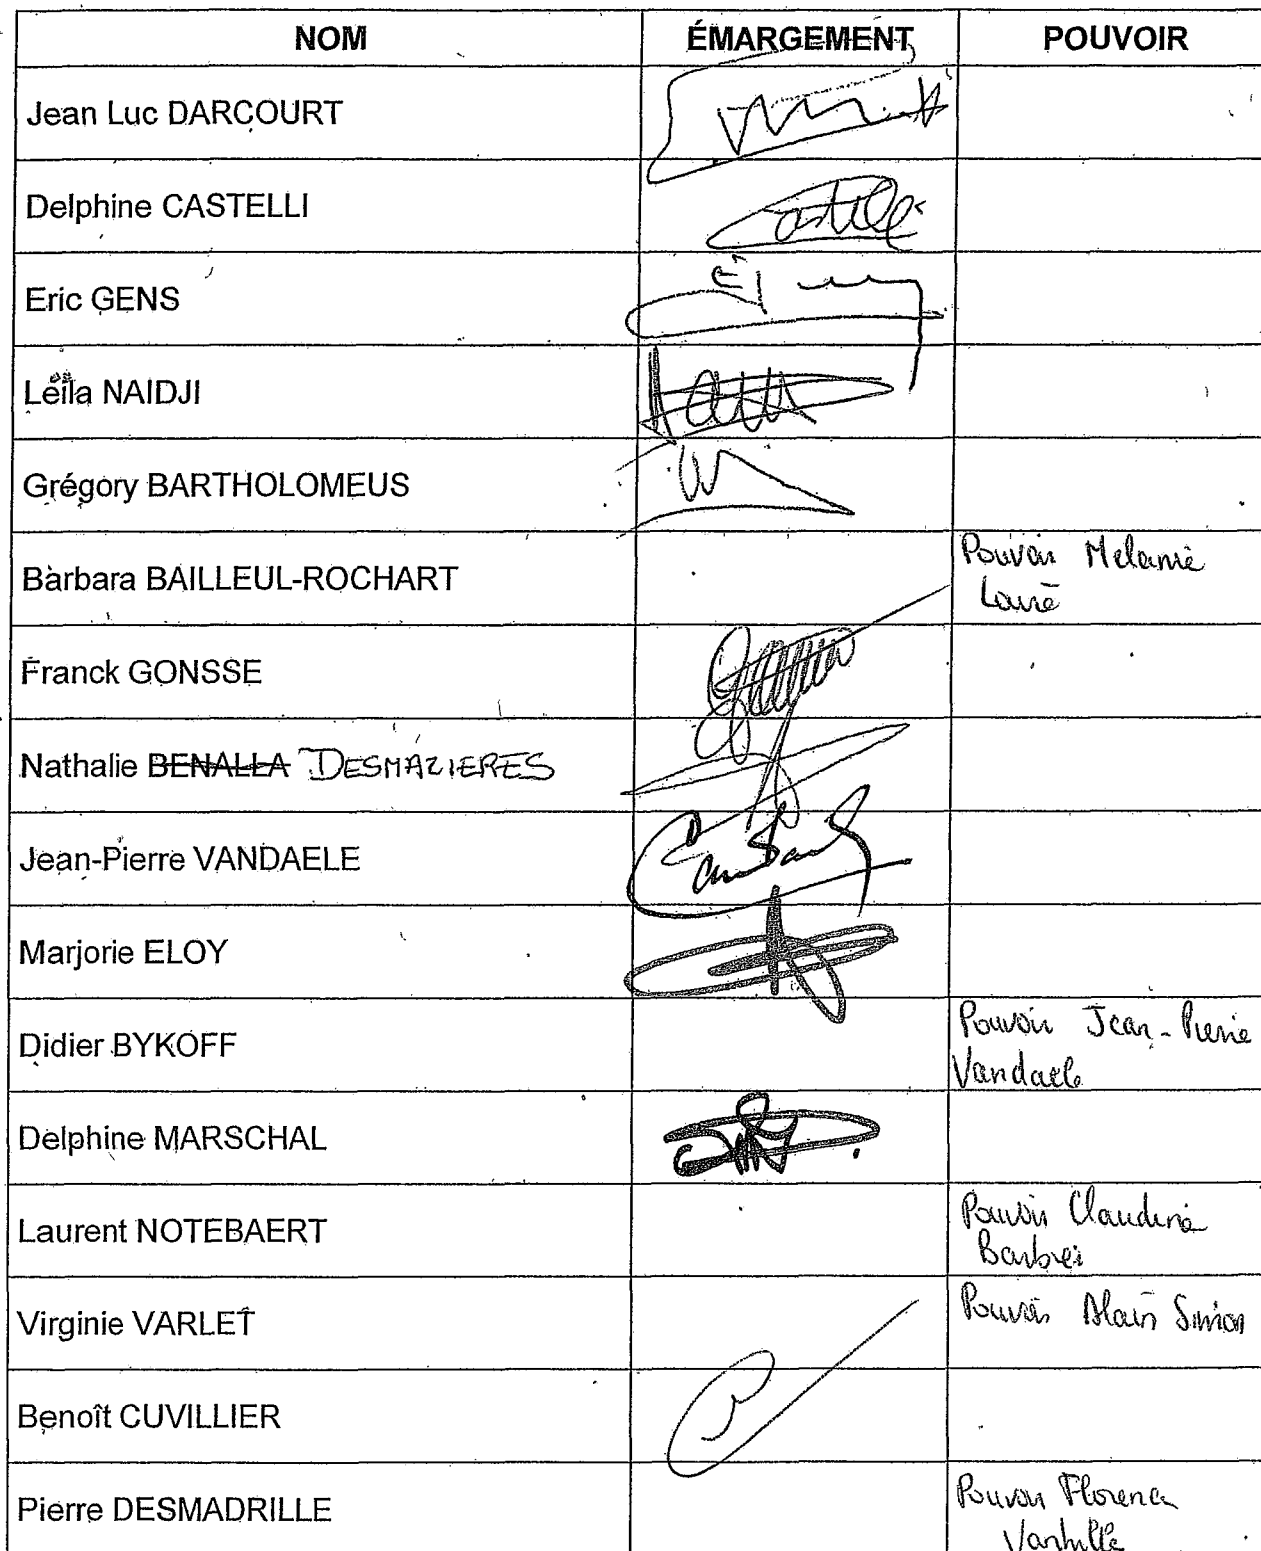 NOM ÉMARGEMENT POUVOIR
Jean Luc DARCOURT
Delphine CASTELLI
Eric GENS
Leïla NAIDJI
Grégory BARTHOLOMEUS
Barbara BAILLEUL-ROCHART Pouvoir Melanie
Franck GONSSE
Nathalie BENALLA DESMAZIERES
Jean-Pierre VANDAELE
Marjorie ELOY
Didier BYKOFF Pouvoir Jean-Pierre
Vandaele
Delphine MARSCHAL
Laurent NOTEBAERT Pouvoir Claudine
Virginie VARLET Pouvoir Alain Simon
Benoît CUVILLIER
Pierre DESMADRILLE Pouvoir Florence